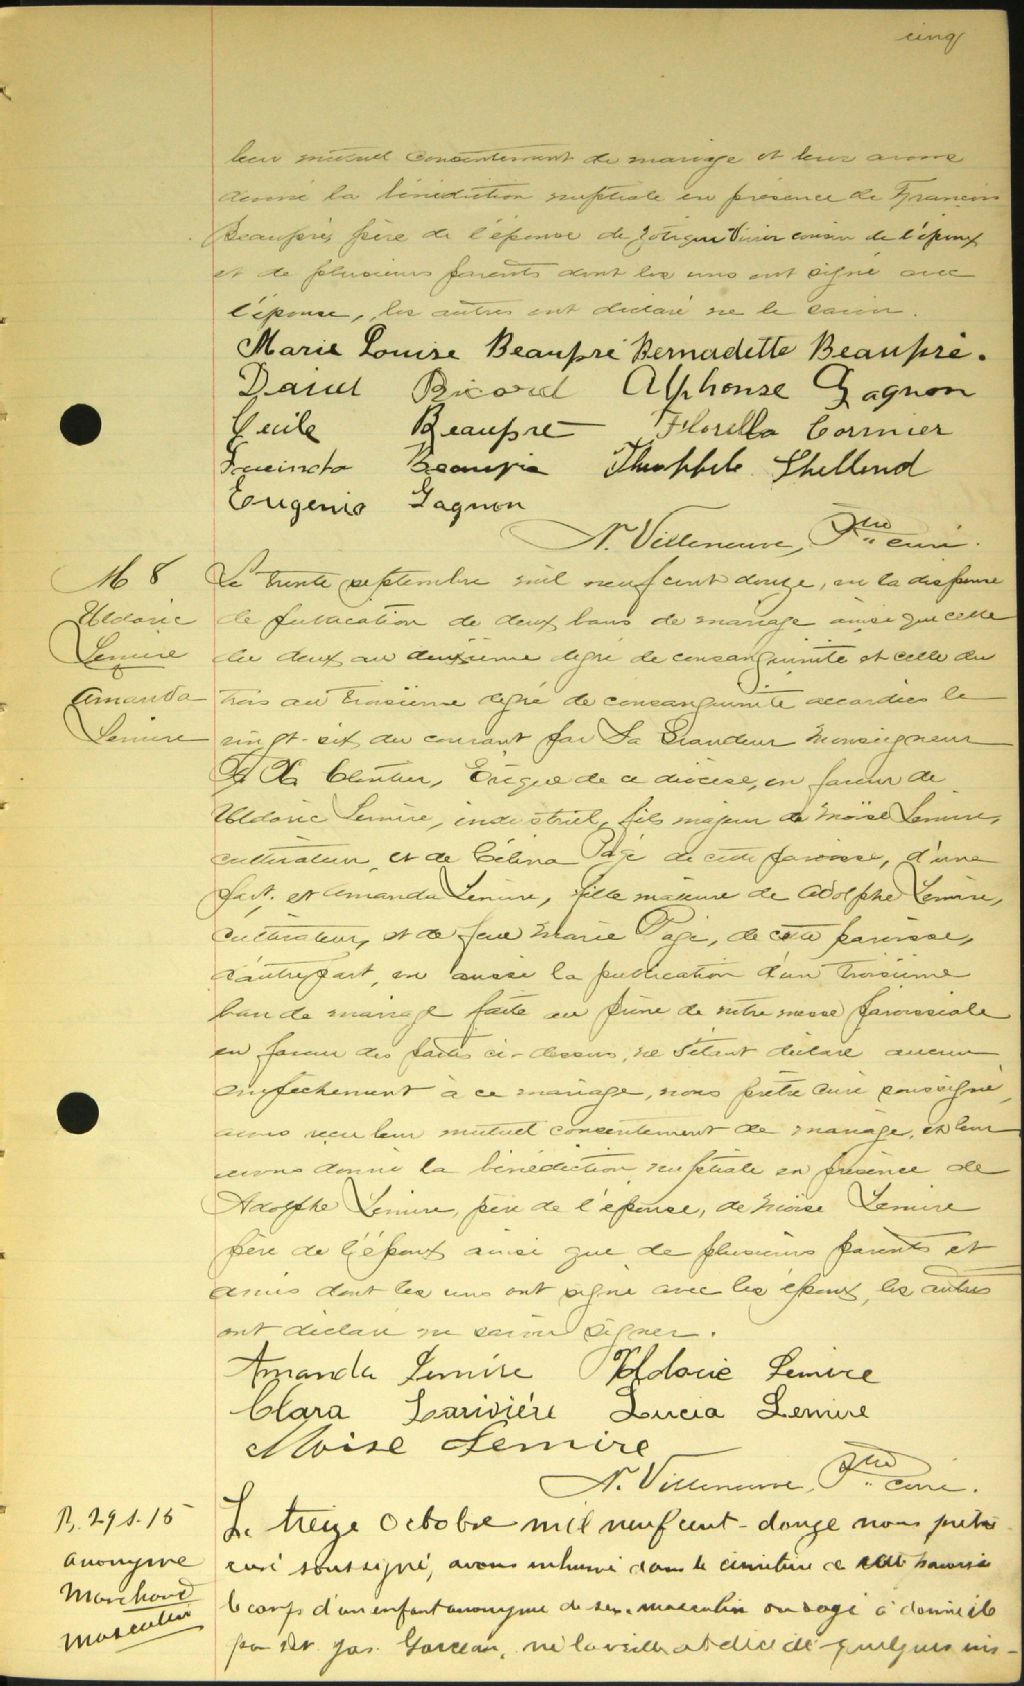 cinq
leur mutuel consentement de mariage et leur avons
donné la bénédiction nuptiale en présence de François
Beaupré, père de l'épouse de Zotique Vivier cousin de l'époux
et de plusieurs parents dont les uns ont signé avec
l'épouse, les autres ont déclaré ne le savoir.
Marie Louise Beaupré Bernadette Beaupré.
David Ricard Alphonse Gagnon
Cecile Beaupré Florella Cormier
Beaupré
Eugenie Gagnon
N. Villeneuve, Ptre curé.
M 8
Uldoric
Lemire
Amanda
Lemire
Le trente septembre mil neuf cent douze, vu la dispense
de publication de deux bans de mariage ainsi que celle
du deux au deuxième degré de consanguinité et celle du
trois au troisième degré de consanguinité accordées le
vingt-six du courant par Sa Grandeur Monseigneur
F. X. Cloutier, Evêque de ce diocèse, en faveur de
Uldoric Lemire, industriel, fils majeur de Moïse Lemire,
cultivateur, et de Célina Pagé de cette paroisse, d'une
part, et Amanda Lemire, fille majeure de Adolphe Lemire,
cultivateur, et de feue Marie Pagé, de cette paroisse,
d'autre part, vu aussi la publication d'un troisième
ban de mariage faite au prône de notre messe paroissiale
en faveur des parties ci-dessus, ne s'étant déclaré aucun
empêchement à ce mariage, nous prêtre curé soussigné,
avons reçu leur mutuel consentement de mariage, et leur
avons donné la bénédiction nuptiale en présence de
Adolphe Lemire, père de l'épouse, de Moïse Lemire
père de l'époux ainsi que de plusieurs parents et
amis dont les uns ont signé avec les époux, les autres
ont déclaré ne savoir signer.
Amanda Lemire Uldoric Lemire
Clara Larivière Lucia Lemire
Moïse Lemire
N. Villeneuve, Ptre curé.
anonyme
Marchand
masculin
Le treize Octobre mil neuf cent-douze nous prêtre
curé soussigné, avons inhumé dans le cimetière de cette paroisse
le corps d'un enfant anonyme de sexe masculin ondoyé à domicile
par Garceau, né la veille et décédé quelques ins-